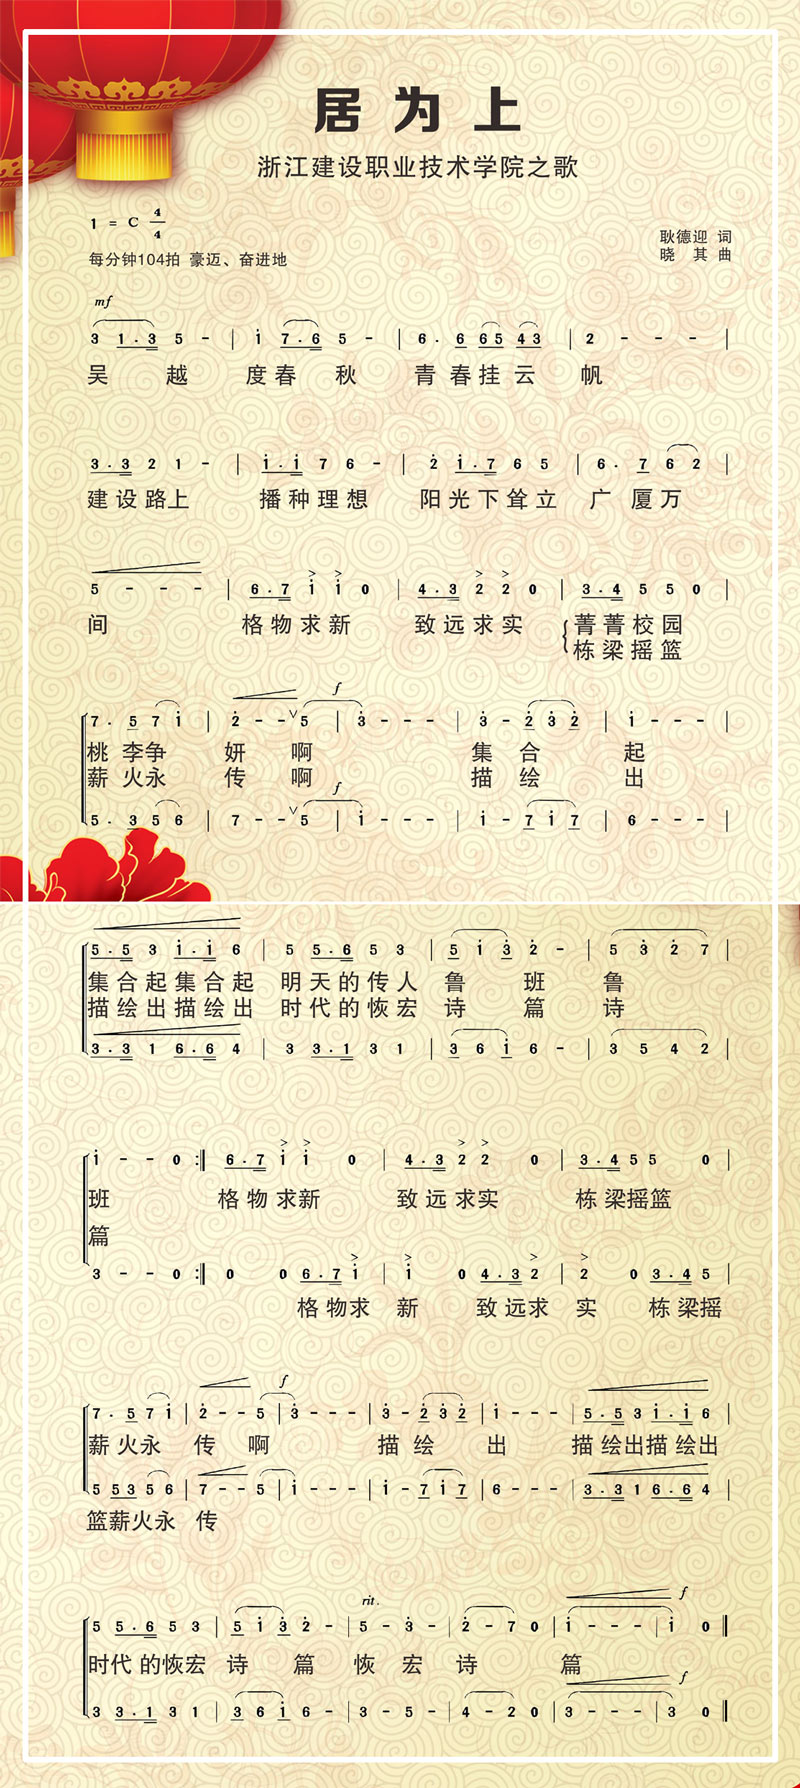 居为上
浙江建设职业技术学院之歌
1 = C 4/4
每分钟104拍 豪迈、奋进地
耿德迎 词
晓其 曲
mf
3 1·3 5 - | i 7·6 5 - | 6· 6 65 43 | 2 - - - |
吴 越 度春 秋 青春挂云 帆
3·3 2 1 - | i·i 7 6 - | 2 i·7 6 5 | 6· 7 6 2 |
建设路上 播种理想 阳光下耸立 广厦万
5 - - - | 6·7 i i 0 | 4·3 2 2 0 | 3·4 5 5 0 |
间 格物求新 致远求实 菁菁校园
栋梁摇篮
f
7· 5 7 i | 2 - - V 5 | 3 - - - | 3 - 2 3 2 | i - - - |
桃李争 妍 啊 集 合 起
薪火永 传 啊 描 绘 出
f
5· 3 5 6 | 7 - - V 5 | i - - - | i - 7 i 7 | 6 - - - |
5·5 3 i·i 6 | 5 5·6 5 3 | 5 i 3 2 - | 5 3 2 7 |
集合起集合起 明天的传人 鲁 班 鲁
描绘出描绘出 时代的恢宏 诗 篇 诗
3·3 1 6·6 4 | 3 3·1 3 1 | 3 6 i 6 - | 3 5 4 2 |
i - - 0 :|| 6·7 i i 0 | 4·3 2 2 0 | 3·4 5 5 0 |
班 格物求新 致远求实 栋梁摇篮
篇
3 - - 0 :|| 0 0 6·7 i | i 0 4·3 2 | 2 0 3·4 5 |
格物求 新 致远求 实 栋梁摇
f
7· 5 7 i | 2 - - 5 | 3 - - - | 3 - 2 3 2 | i - - - | 5·5 3 i·i 6 |
薪火永 传 啊 描 绘 出 描绘出描绘出
5 5 3 5 6 | 7 - - 5 | i - - - | i - 7 i 7 | 6 - - - | 3·3 1 6·6 4 |
篮薪火永 传
rit. f
5 5·6 5 3 | 5 i 3 2 - | 5 - 3 - | 2 - 7 0 | i - - - | i 0 ||
时代的恢宏 诗 篇 恢 宏 诗 篇
f
3 3·1 3 1 | 3 6 i 6 - | 3 - 5 - | 4 - 2 0 | 3 - - - | 3 0 ||